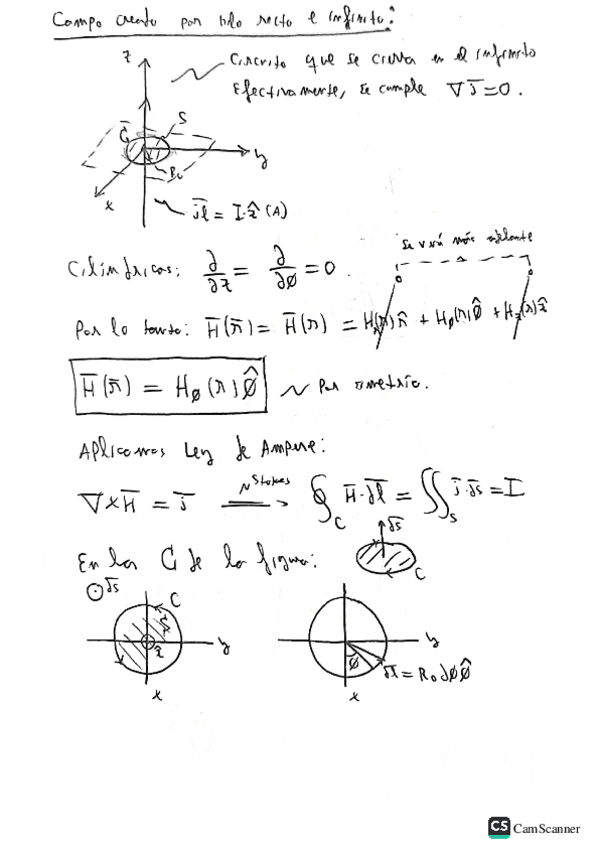 Campo creado por hilo recto e infinito:
z
Circuito que se cierra en el infinito
Efectivamente, se cumple ∇J̄=0.
C
S
R₀
y
x
j̄l = I·ẑ (A)
se verá más adelante
Cilíndricas: ∂/∂z = ∂/∂ø = 0.
Por lo tanto: H̄(r̄) = H̄(r) = Hr(r)r̂ + Hø(r)ø̂ + Hz(r)ẑ
H̄(r̄) = Hø(r)ø̂ ~ Por simetría.
Aplicamos Ley de Ampere:
∇×H̄ = J̄ ~Stokes → ∮C H̄·dl̄ = ∬S J̄·ds̄ = I
ds̄
C
En la C de la figura:
ds̄
C
ẑ
y
x
ø
y
dl̄ = R₀døø̂
x
CS CamScanner